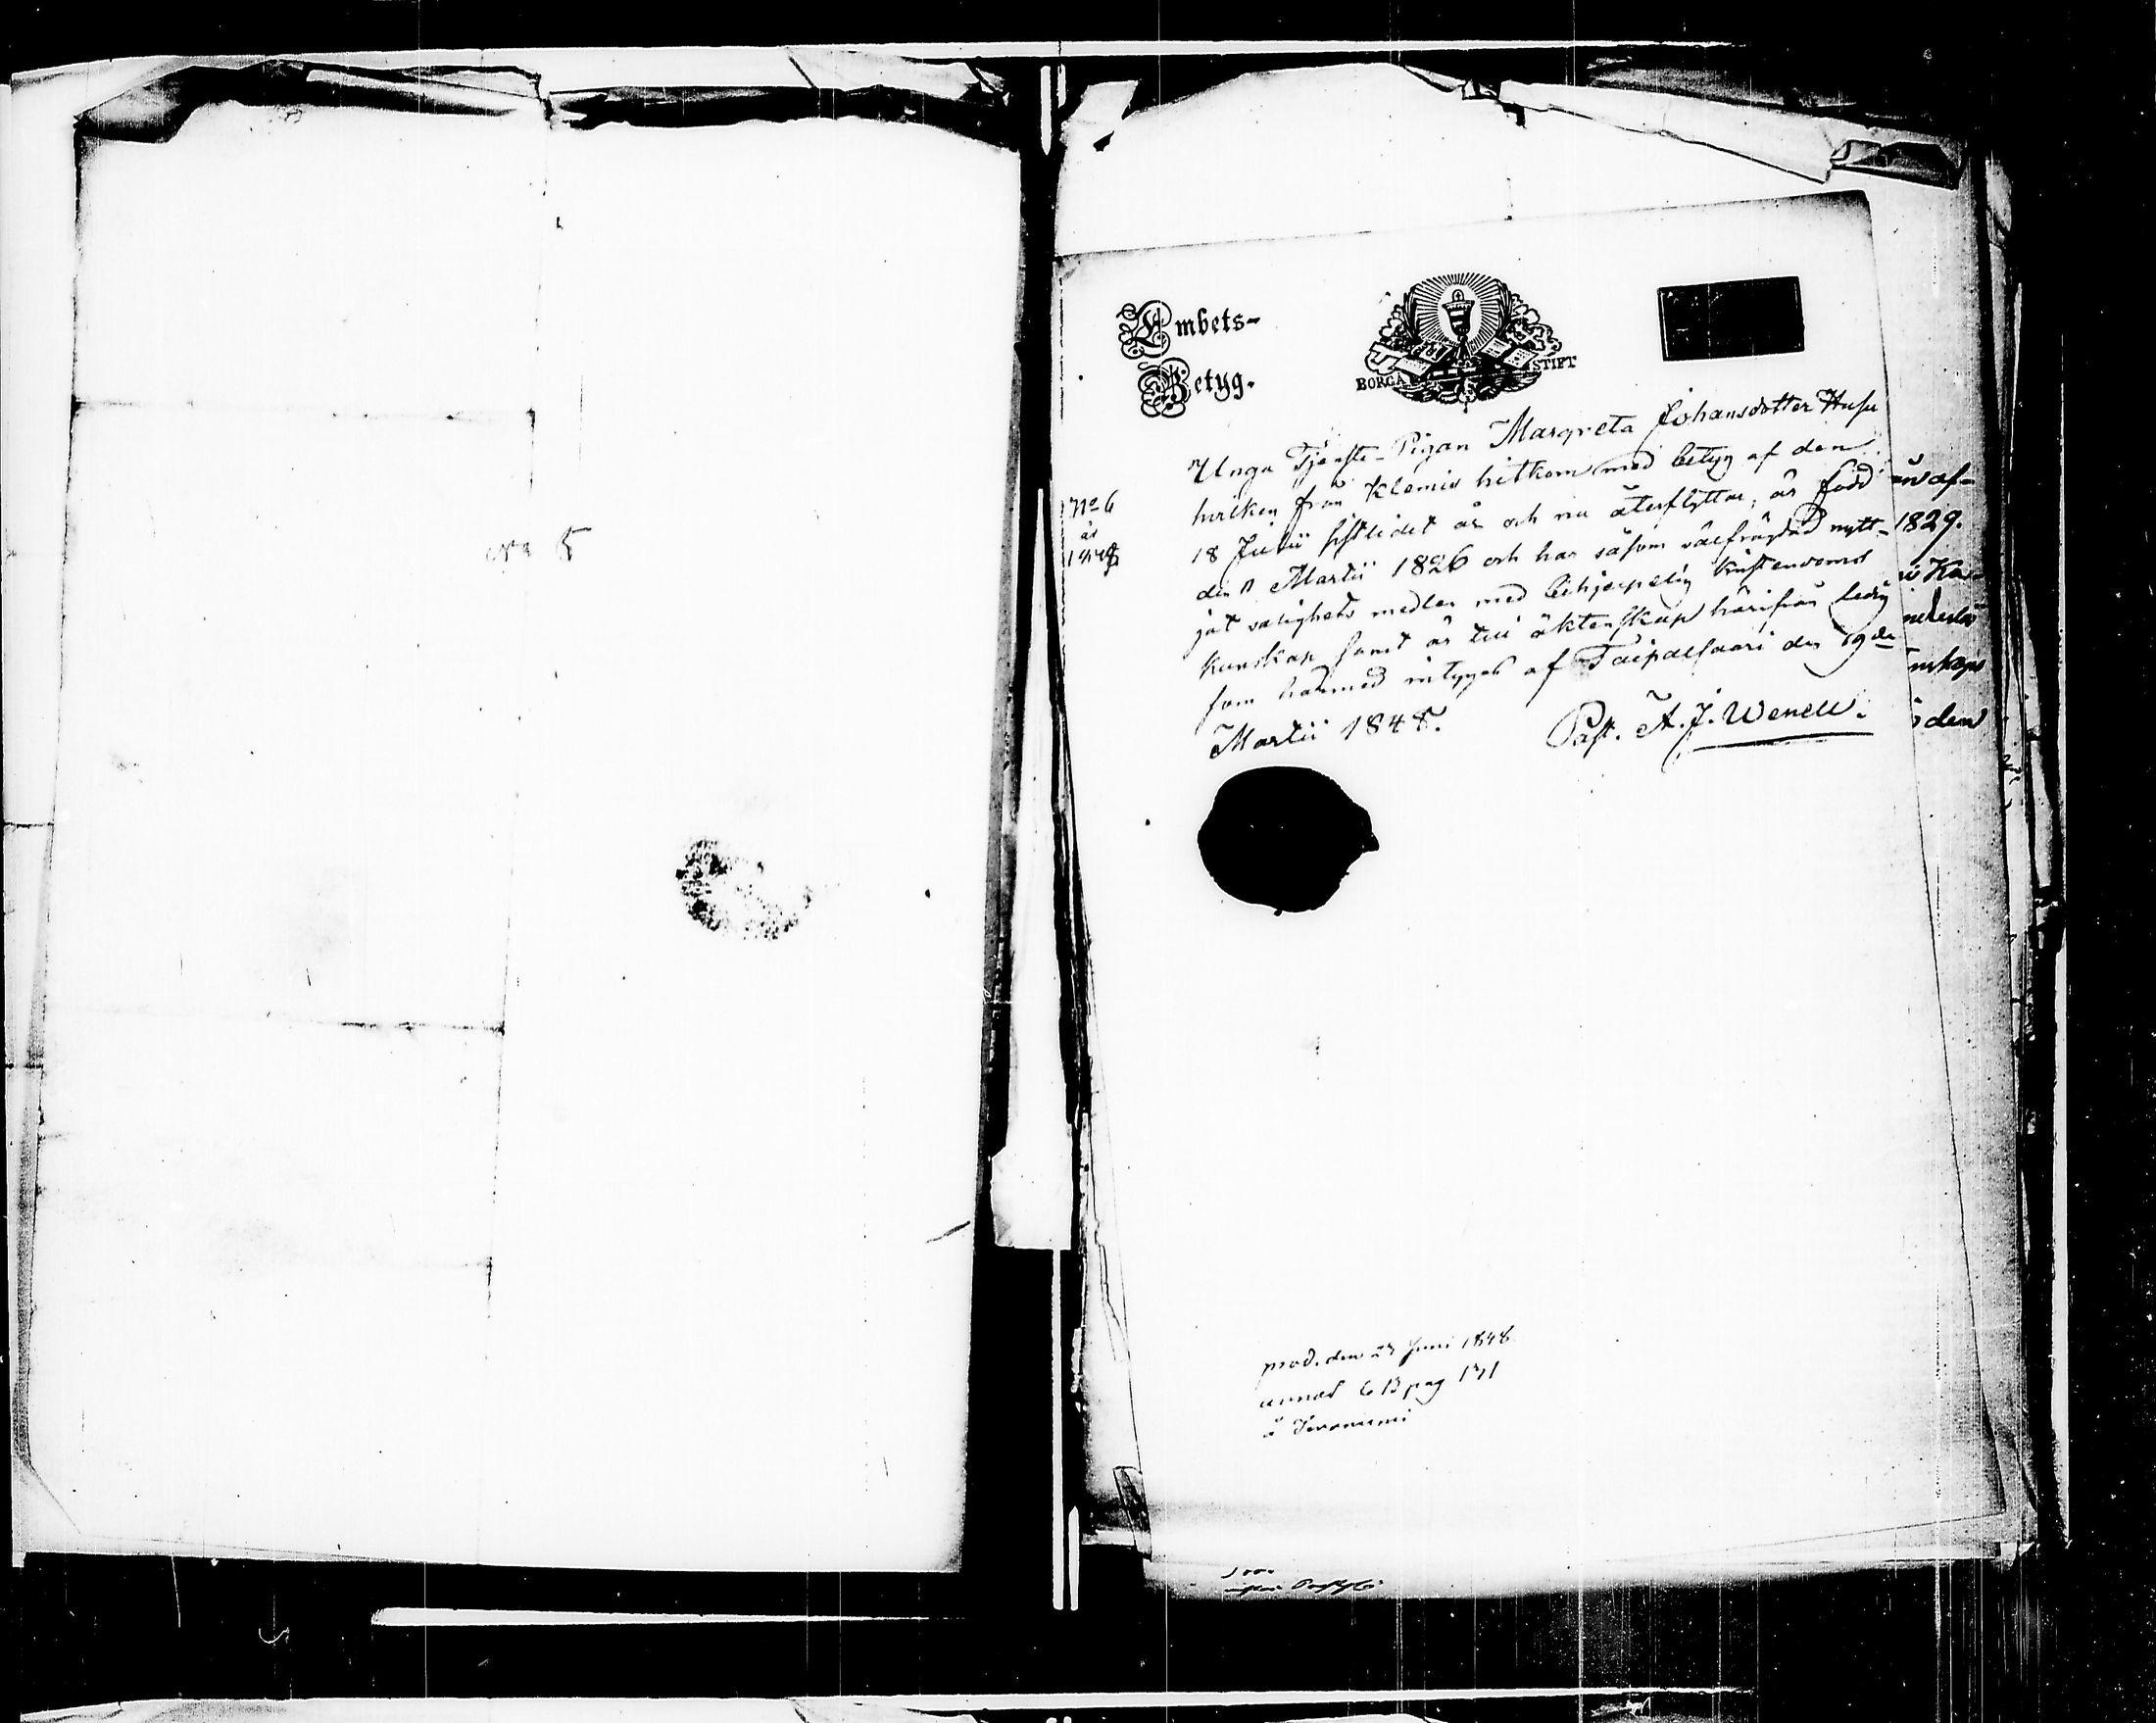 No 5
Embets-
Betyg.
BORGÅ STIFT
No 6
år
1848
Unga Tjenste-Pigan Margreta Johansdotter Husu
hvilken från Klemis hitkom med betyg af den
18 Julii sistlidet år och nu återflyttar, är född
den 11 Martii 1826 och har såsom välfrägdad nytt-
jat salighets medlen med behjerpelig kristendoms
kunskap samt är till äktenskap härifrån ledig
som härmed intygas af Taipalsaari den 19de
Martii 1848.
Past. A. J. Wenell.
af-
1829.
Ka-
den
prod. den 27 Juni 1848
annot C B pag 171
å